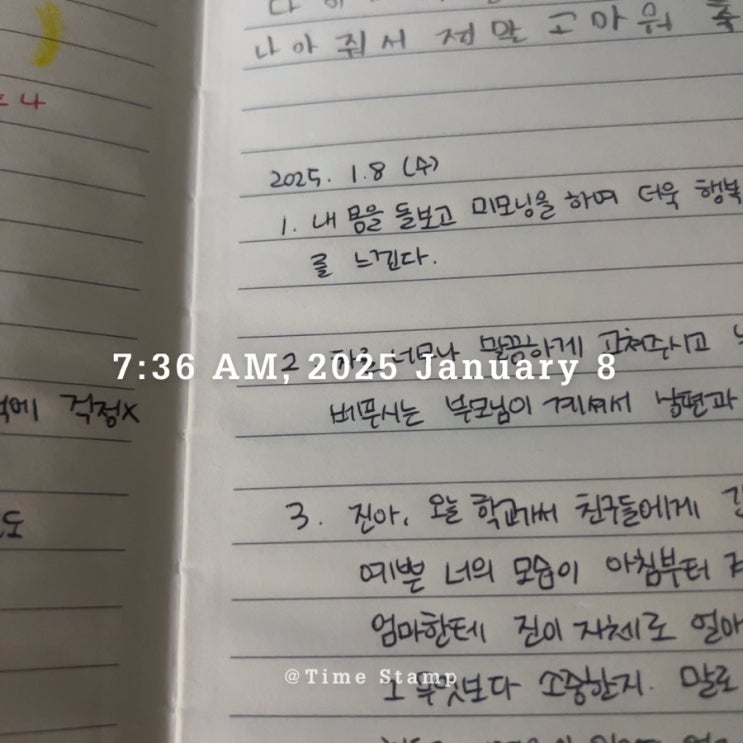 나아 줘서 정말 고마워 축
2025. 1.8 (수)
1. 내 몸을 돌보고 미모닝을 하며 더욱 행복
를 느낀다.
2 너무나 말끔하게 고쳐주시고
베푸시는 부모님이 계셔서 남편과
3. 진아, 오늘 학교가서 친구들에게
예쁜 너의 모습이 아침부터
엄마한테 진이 자체로 얼마
그 무엇보다 소중한지. 말로
걱정x
도
7:36 AM, 2025 January 8
@Time Stamp